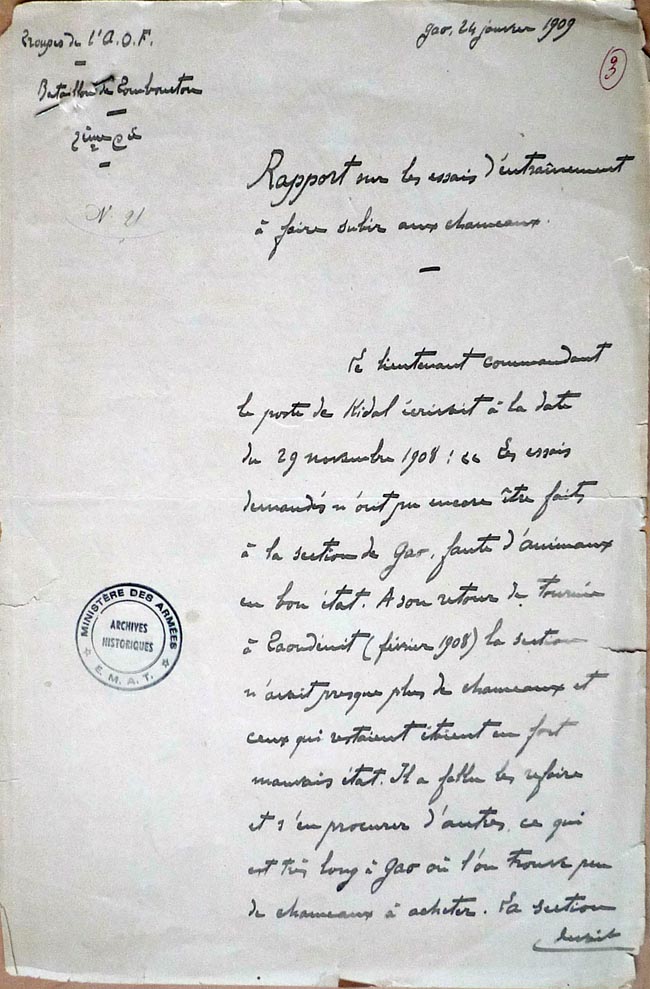 Troupes de l'A.O.F.
Bataillon de Tombouctou
2ème Cie
N. 21
Gao, 24 janvier 1909
3
Rapport sur les essais d'entraînement
à faire subir aux chameaux.
Le lieutenant commandant
le poste de Kidal écrivait à la date
du 29 novembre 1908 : « Les essais
demandés n'ont pu encore être faits
à la section de Gao, faute d'animaux
en bon état. A son retour de tournée
à Taoudénit (février 1908) la section
n'avait presque plus de chameaux et
ceux qui restaient étaient en fort
mauvais état. Il a fallu les refaire
et s'en procurer d'autres, ce qui
est très long à Gao où l'on trouve peu
de chameaux à acheter. La section
devait
MINISTÈRE DES ARMÉES
ARCHIVES
HISTORIQUES
E.M.A.T.